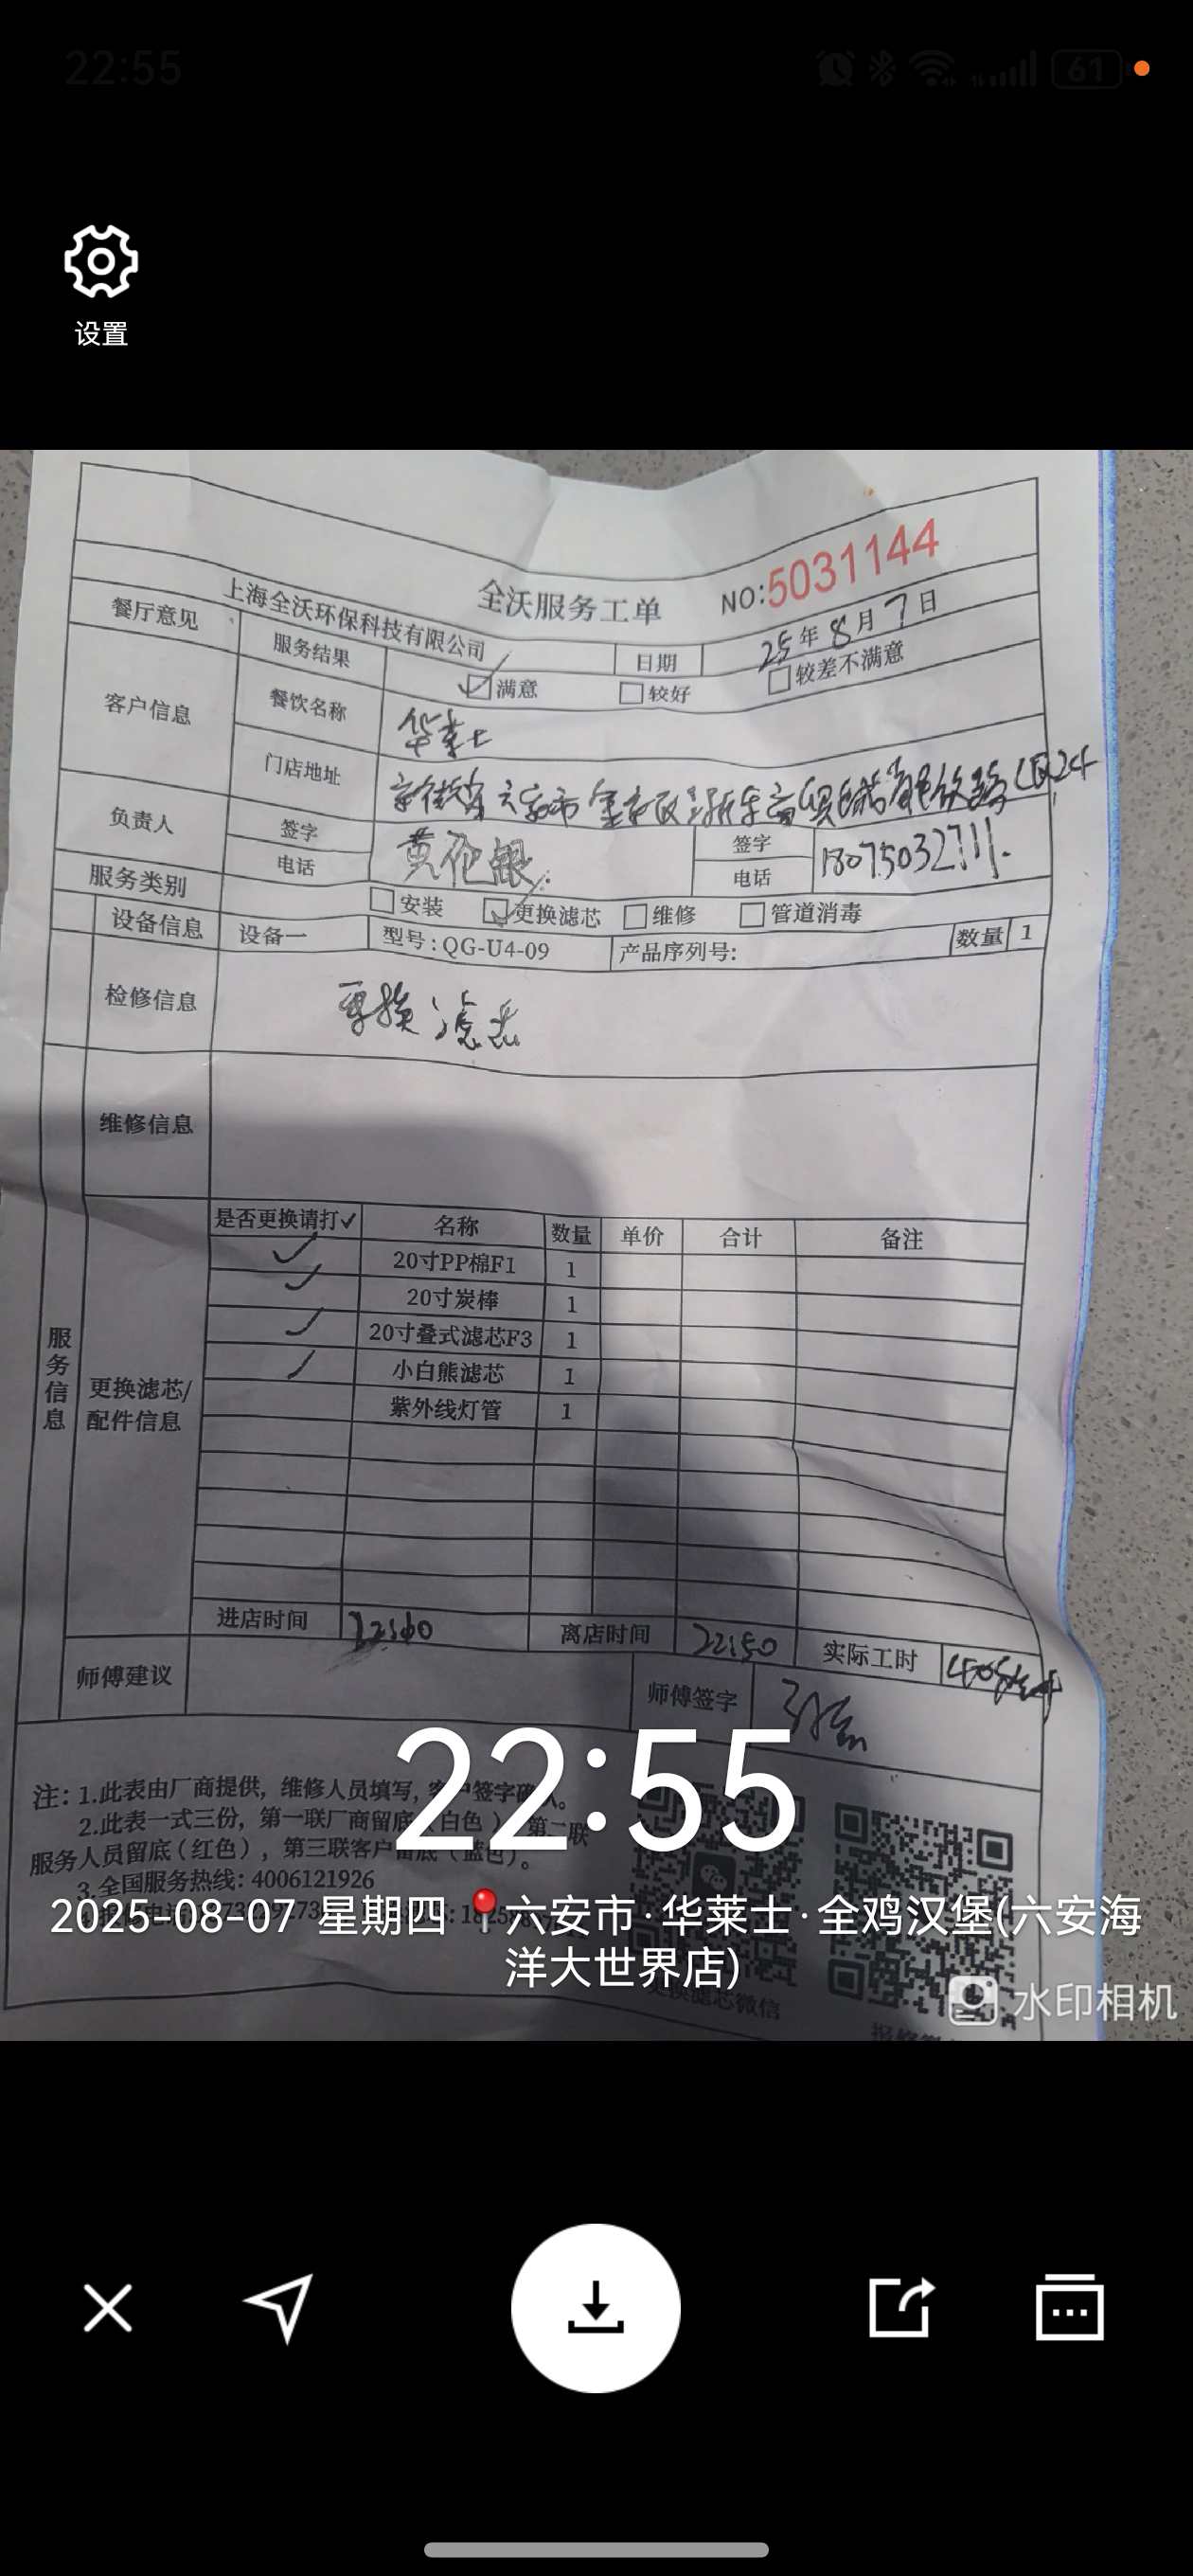 22:55
61
设置
全沃服务工单 NO:5031144
上海全沃环保科技有限公司 日期 25年8月7日
餐厅意见 服务结果 满意 较好 较差不满意
客户信息 餐饮名称 华莱士
门店地址
负责人 签字 黄 银 签字
电话 电话 18075032711.
服务类别 安装 更换滤芯 维修 管道消毒
设备信息 设备一 型号:QG-U4-09 产品序列号: 数量 1
检修信息 更换滤芯
维修信息
服务信息
更换滤芯/配件信息
是否更换请打✓ 名称 数量 单价 合计 备注
✓ 20寸PP棉F1 1
✓ 20寸炭棒 1
✓ 20寸叠式滤芯F3 1
✓ 小白熊滤芯 1
紫外线灯管 1
进店时间 离店时间 22:50 实际工时
师傅建议 师傅签字
注: 1.此表由厂商提供, 维修人员填写, 客户签字确认。
2.此表一式三份, 第一联厂商留底(白色), 第二联
服务人员留底(红色), 第三联客户留底(蓝色)。
3.全国服务热线: 4006121926
更换滤芯微信
22:55
2025-08-07 星期四 六安市·华莱士·全鸡汉堡(六安海
洋大世界店)
水印相机